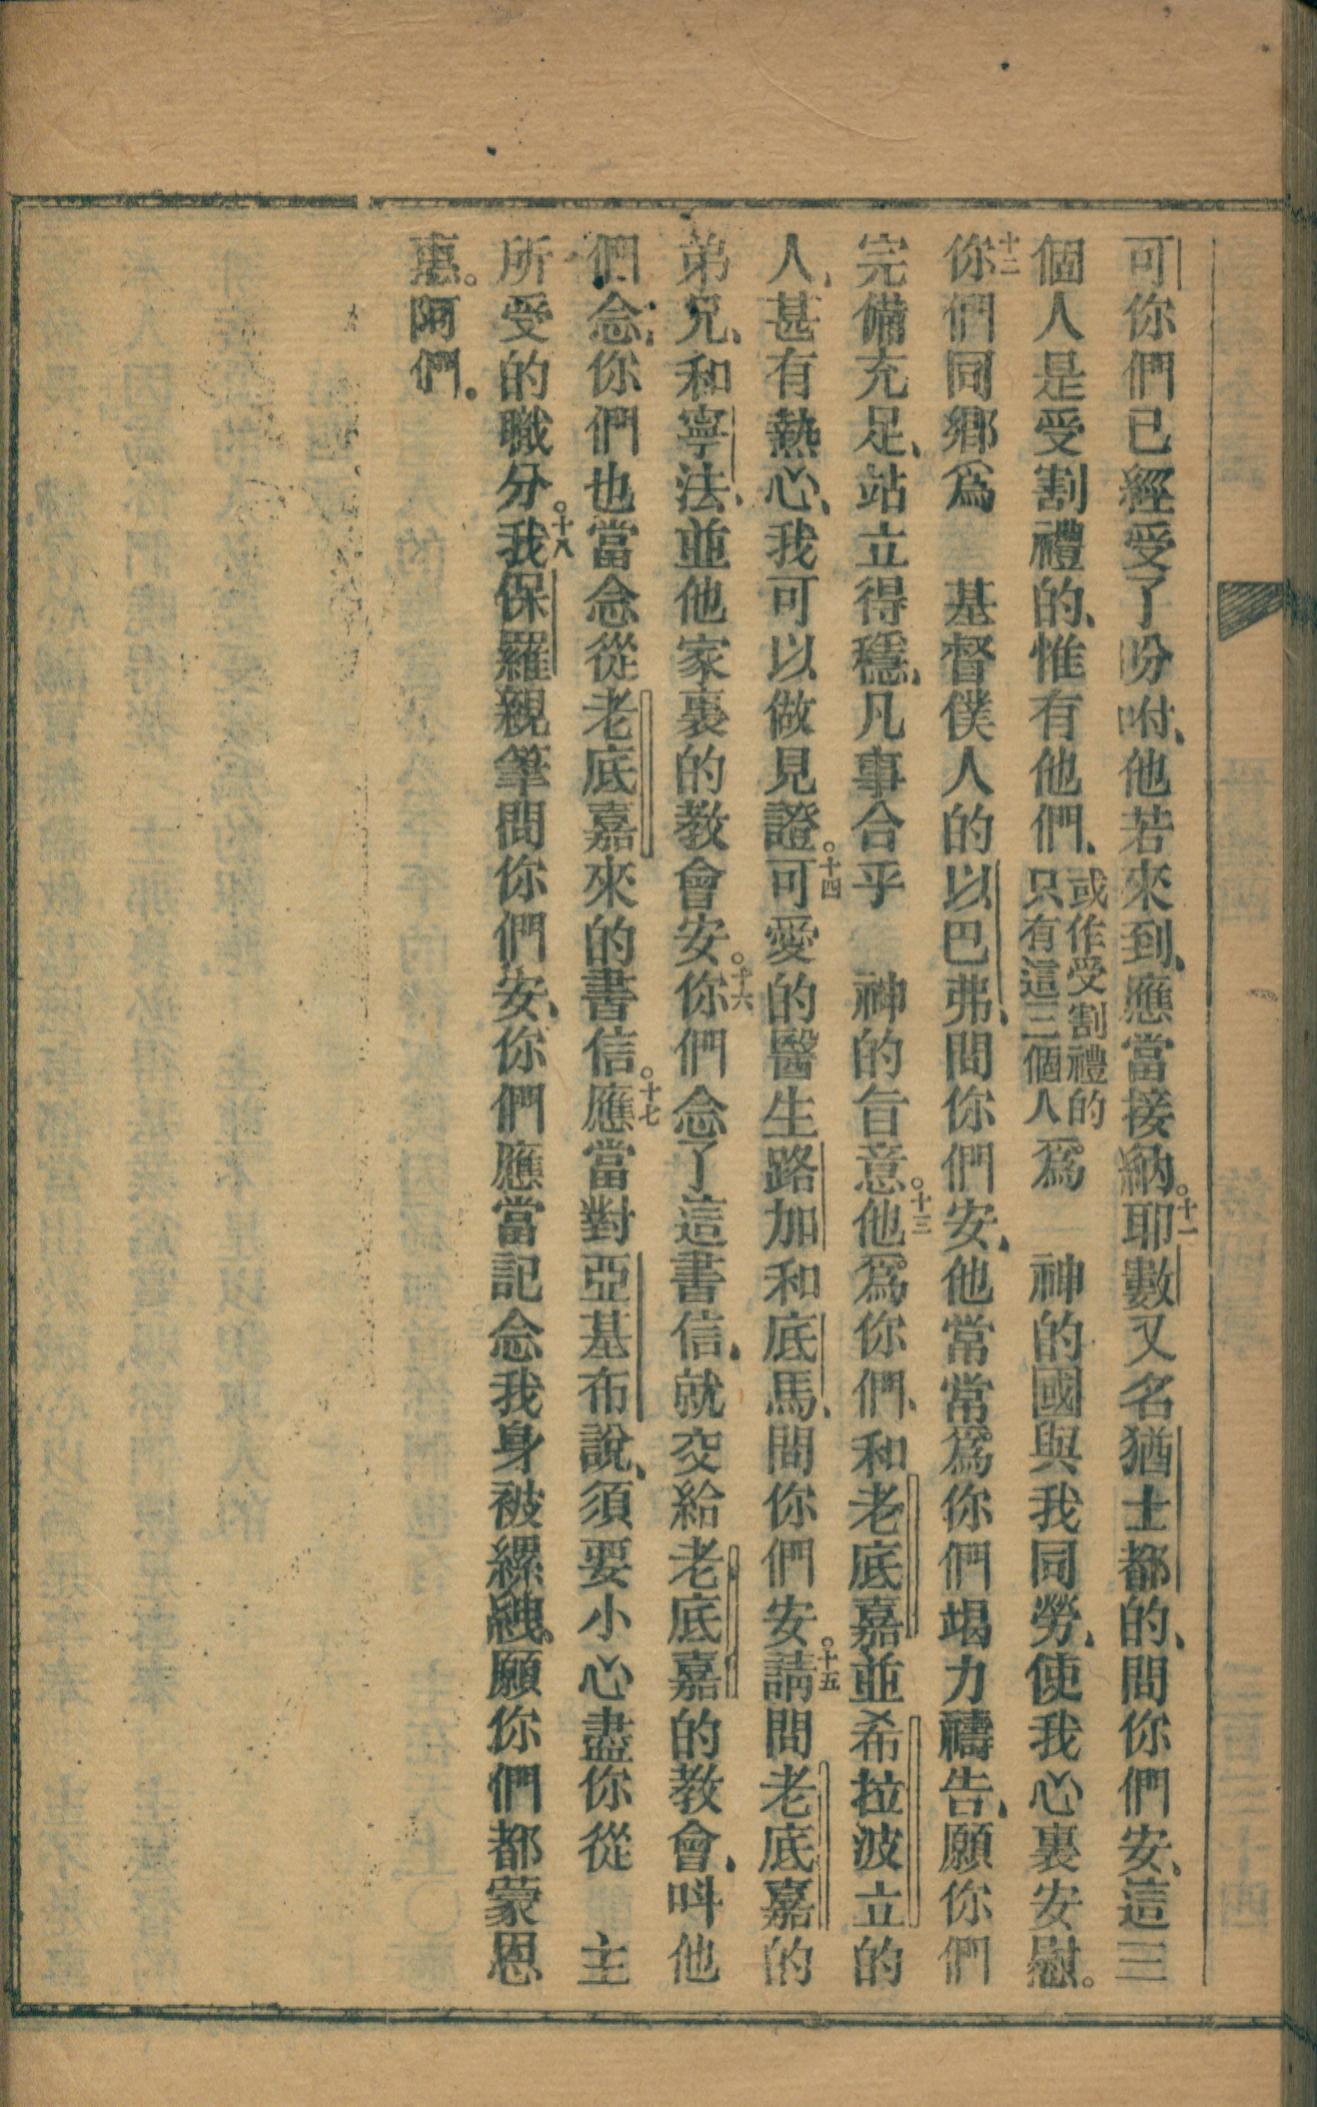 可你們已經受了吩咐、他若來到、應當接納。十一耶數又名猶士都的、問你們安、這三
個人是受割禮的、惟有他們、或作受割禮的只有這三個人爲　神的國與我同勞、使我心裏安慰。
十二你們同鄉爲　基督僕人的以巴弗、問你們安、他常常爲你們竭力禱告、願你們
完備充足、站立得穩、凡事合乎　神的旨意。十三他爲你們、和老底嘉並希拉波立的
人、甚有熱心、我可以做見證。十四可愛的醫生路加和底馬、問你們安。十五請問老底嘉的
弟兄、和寧法、並他家裏的教會安。十六你們念了這書信、就交給老底嘉的教會、呌他
們念、你們也當念從老底嘉來的書信。十七應當對亞基布說、須要小心盡你從　主
所受的職分。十八我保羅親筆問你們安、你們應當記念我身被縲絏。願你們都蒙恩
惠。阿們。